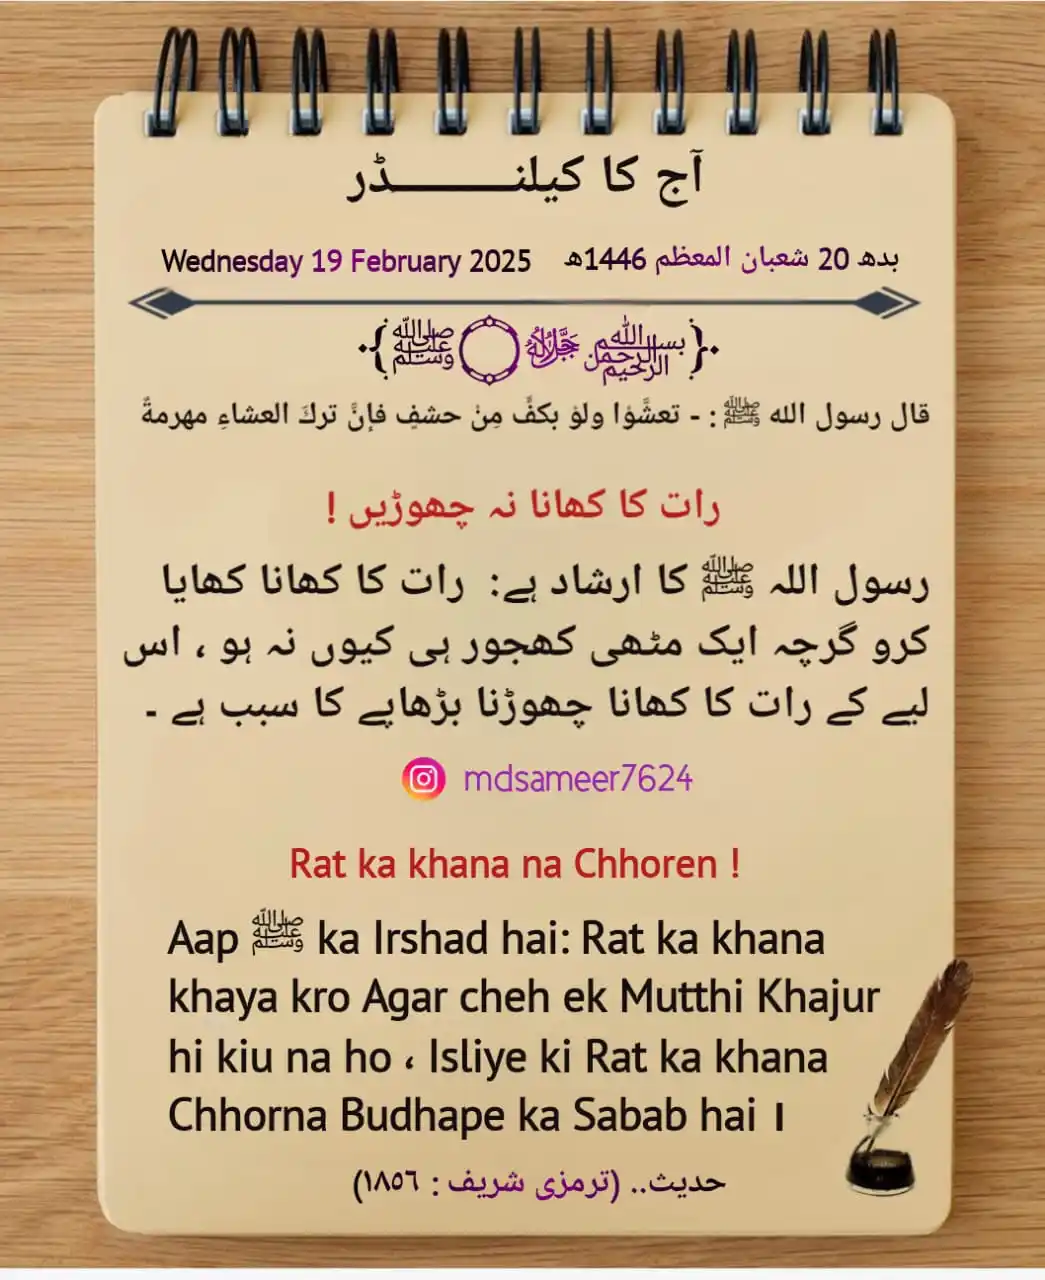 آج کا کیلنـــــــــڈر
بدھ 20 شعبان المعظم 1446ھ
Wednesday 19 February 2025
﷽ ﷻ ﷺ
قال رسول الله ﷺ : - تعشَّوْا ولوْ بكفٍّ مِنْ حشفٍ فإنَّ تركَ العشاءِ مهرمةٌ
رات کا کھانا نہ چھوڑیں !
رسول اللہ ﷺ کا ارشاد ہے: رات کا کھانا کھایا
کرو گرچہ ایک مٹھی کھجور ہی کیوں نہ ہو ، اس
لیے کے رات کا کھانا چھوڑنا بڑھاپے کا سبب ہے ۔
mdsameer7624
Rat ka khana na Chhoren !
Aap ﷺ ka Irshad hai: Rat ka khana
khaya kro Agar cheh ek Mutthi Khajur
hi kiu na ho ، Isliye ki Rat ka khana
Chhorna Budhape ka Sabab hai ।
حدیث.. (ترمزی شریف : ١٨٥٦)